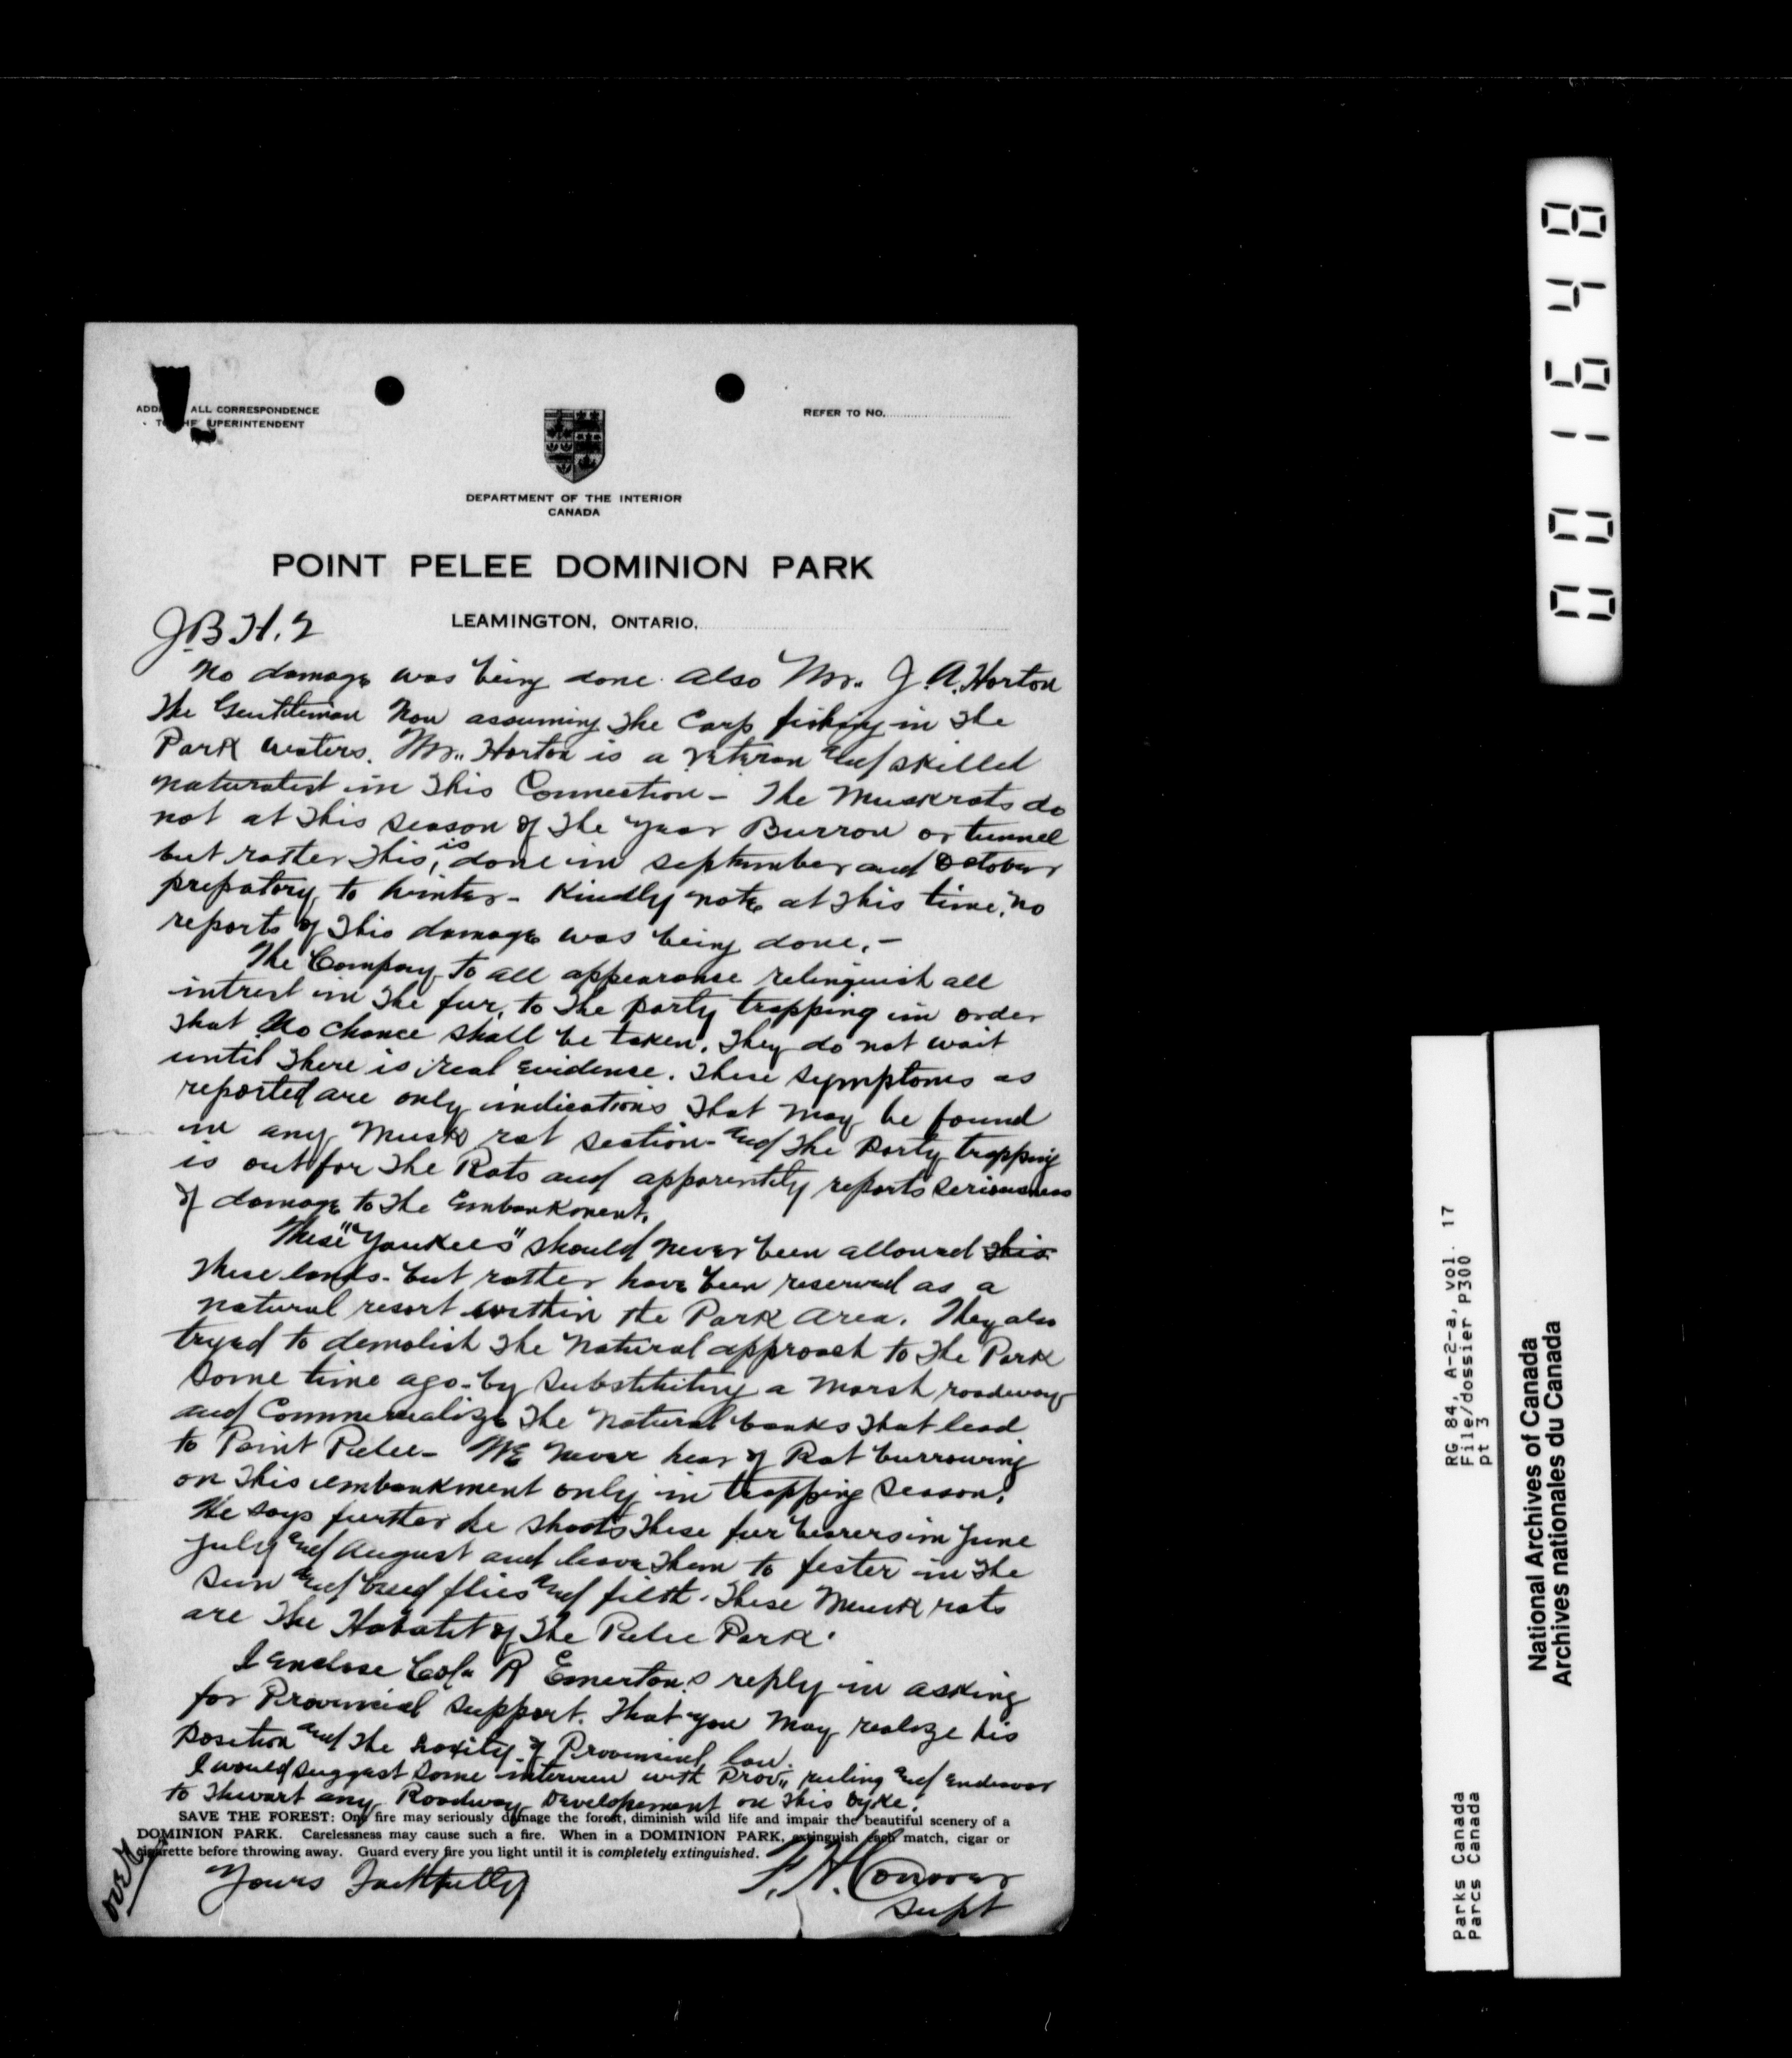 ADD ALL CORRESPONDENCE
TO THE SUPERINTENDENT
REFER TO NO.
DEPARTMENT OF THE INTERIOR
CANADA
POINT PELEE DOMINION PARK
LEAMINGTON, ONTARIO.
J.B.H. 2
No damage was being done. Also Mr. J. A. Horton
The Gentleman Now assuming the Carp fishing in the
Park waters. Mr. Horton is a veteran and skilled
naturalist in this Connection - The Muskrats do
not at this season of the year Burrow or tunnel
but rather this is done in September and October
prepatory to Winter - Kindly note at this time, no
reports of this damage was being done. -
The Company to all appearanse relinquish all
intrest in the fur, to the party trapping in order
that No chance shall be taken. They do not wait
until there is real Evidense. These symptoms as
reported are only indications that may be found
in any Musk rat section - and the Party trapping
is out for the Rats and apparentily reports seriousness
of damage to the Embankment.
These "Yankees" should never been allowed this
these lands - but rather have been reserved as a
natural resort within the Park area. They also
tryed to demolish the natural approach to the Park
some time ago - by substituting a Marsh roadway
and Commercialize the natural banks that lead
to Point Pelee - WE never hear of Rat burrowing
on this embankment only in trapping season.
He says further he shoots these fur bearers in June
July and August and leave them to fester in the
sun and breed flies and filth. These Musk rats
are the Habatet of the Pelee Park.
I Enclose Col. R Emerton's reply in asking
for Provincial support. That you may realize his
Position and the laxity of Provincial law.
I would suggest some interview with Prov. ruling and Endeavor
to thwart any Roadway Developement on this Dyke.
SAVE THE FOREST: One fire may seriously damage the forest, diminish wild life and impair the beautiful scenery of a
DOMINION PARK. Carelessness may cause such a fire. When in a DOMINION PARK, extinguish each match, cigar or
cigarette before throwing away. Guard every fire you light until it is completely extinguished.
Yours Faithfully
F. H. Conover
Supt
over
001648
RG 84, A-2-a, vol. 17
File/dossier P300
pt 3
Parks Canada
Parcs Canada
National Archives of Canada
Archives nationales du Canada